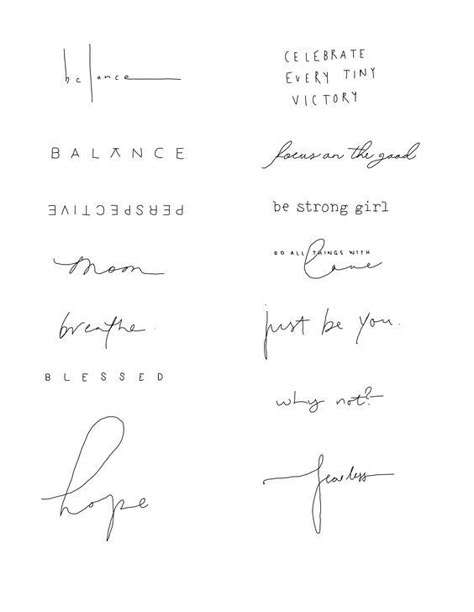 balance
BALANCE
PERSPECTIVE
moon
breathe.
BLESSED
hope
CELEBRATE
EVERY TINY
VICTORY
focus on the good
be strong girl
DO ALL THINGS WITH
Love
just be you.
why not?
fearless